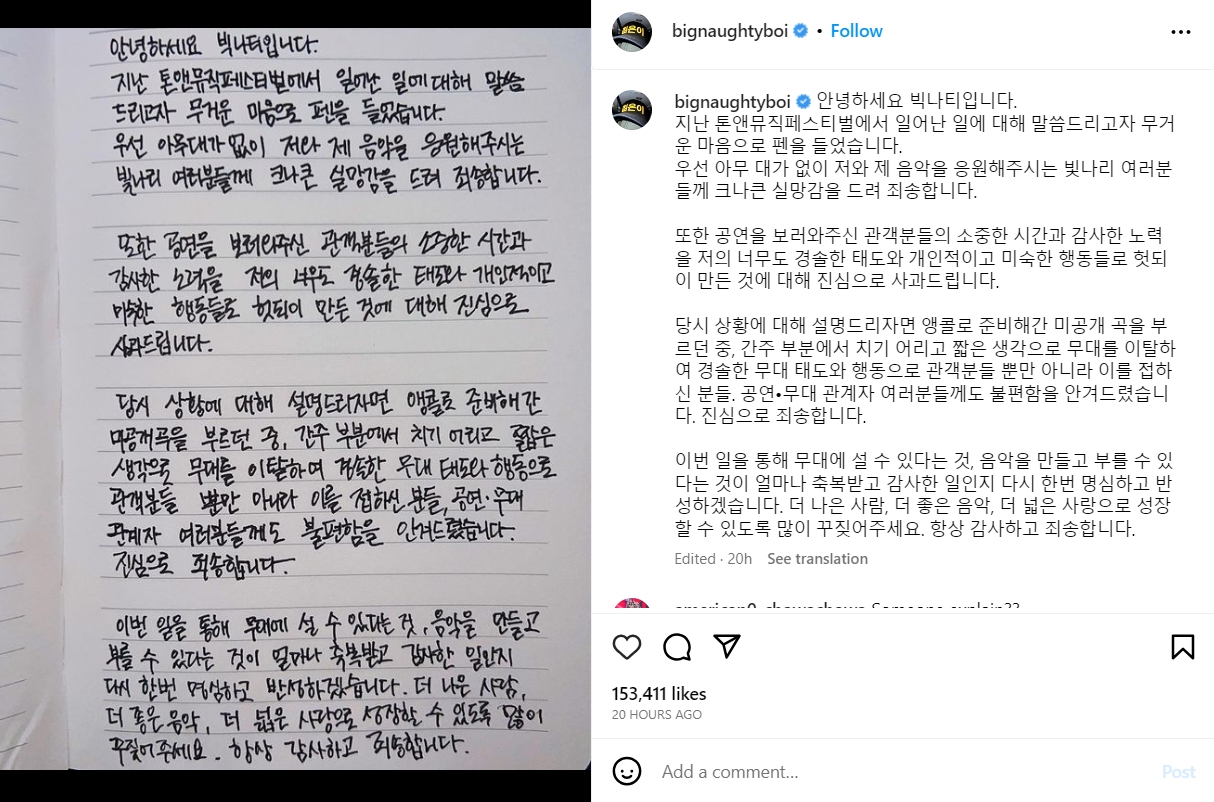 안녕하세요 빅나티입니다.
지난 톤앤뮤직페스티벌에서 일어난 일에 대해 말씀
드리고자 무거운 마음으로 펜을 들었습니다.
우선 아무대가 없이 저와 제 음악을 응원해주시는
빛나리 여러분들께 크나큰 실망감을 드려 죄송합니다.
또한 공연을 보러와주신 관객분들의 소중한 시간과
감사한 노력을 저의 너무도 경솔한 태도와 개인적이고
미숙한 행동들로 헛되이 만든 것에 대해 진심으로
사과드립니다.
당시 상황에 대해 설명드리자면 앵콜로 준비해간
미공개곡을 부르던 중, 간주 부분에서 치기 어리고 짧은
생각으로 무대를 이탈하여 경솔한 무대 태도와 행동으로
관객분들 뿐만 아니라 이를 접하신 분들, 공연·무대
관계자 여러분들께도 불편함을 안겨드렸습니다.
진심으로 죄송합니다.
이번 일을 통해 무대에 설 수 있다는 것, 음악을 만들고
부를 수 있다는 것이 얼마나 축복받고 감사한 일인지
다시 한번 명심하고 반성하겠습니다. 더 나은 사람,
더 좋은 음악, 더 넓은 사랑으로 성장할 수 있도록 많이
꾸짖어주세요. 항상 감사하고 죄송합니다.
젊은이
bignaughtyboi • Follow
젊은이
bignaughtyboi 안녕하세요 빅나티입니다.
지난 톤앤뮤직페스티벌에서 일어난 일에 대해 말씀드리고자 무거
운 마음으로 펜을 들었습니다.
우선 아무 대가 없이 저와 제 음악을 응원해주시는 빛나리 여러분
들께 크나큰 실망감을 드려 죄송합니다.
또한 공연을 보러와주신 관객분들의 소중한 시간과 감사한 노력
을 저의 너무도 경솔한 태도와 개인적이고 미숙한 행동들로 헛되
이 만든 것에 대해 진심으로 사과드립니다.
당시 상황에 대해 설명드리자면 앵콜로 준비해간 미공개 곡을 부
르던 중, 간주 부분에서 치기 어리고 짧은 생각으로 무대를 이탈하
여 경솔한 무대 태도와 행동으로 관객분들 뿐만 아니라 이를 접하
신 분들. 공연•무대 관계자 여러분들께도 불편함을 안겨드렸습니
다. 진심으로 죄송합니다.
이번 일을 통해 무대에 설 수 있다는 것, 음악을 만들고 부를 수 있
다는 것이 얼마나 축복받고 감사한 일인지 다시 한번 명심하고 반
성하겠습니다. 더 나은 사람, 더 좋은 음악, 더 넓은 사랑으로 성장
할 수 있도록 많이 꾸짖어주세요. 항상 감사하고 죄송합니다.
Edited · 20h See translation
Someone explain??
153,411 likes
20 HOURS AGO
Add a comment...
Post